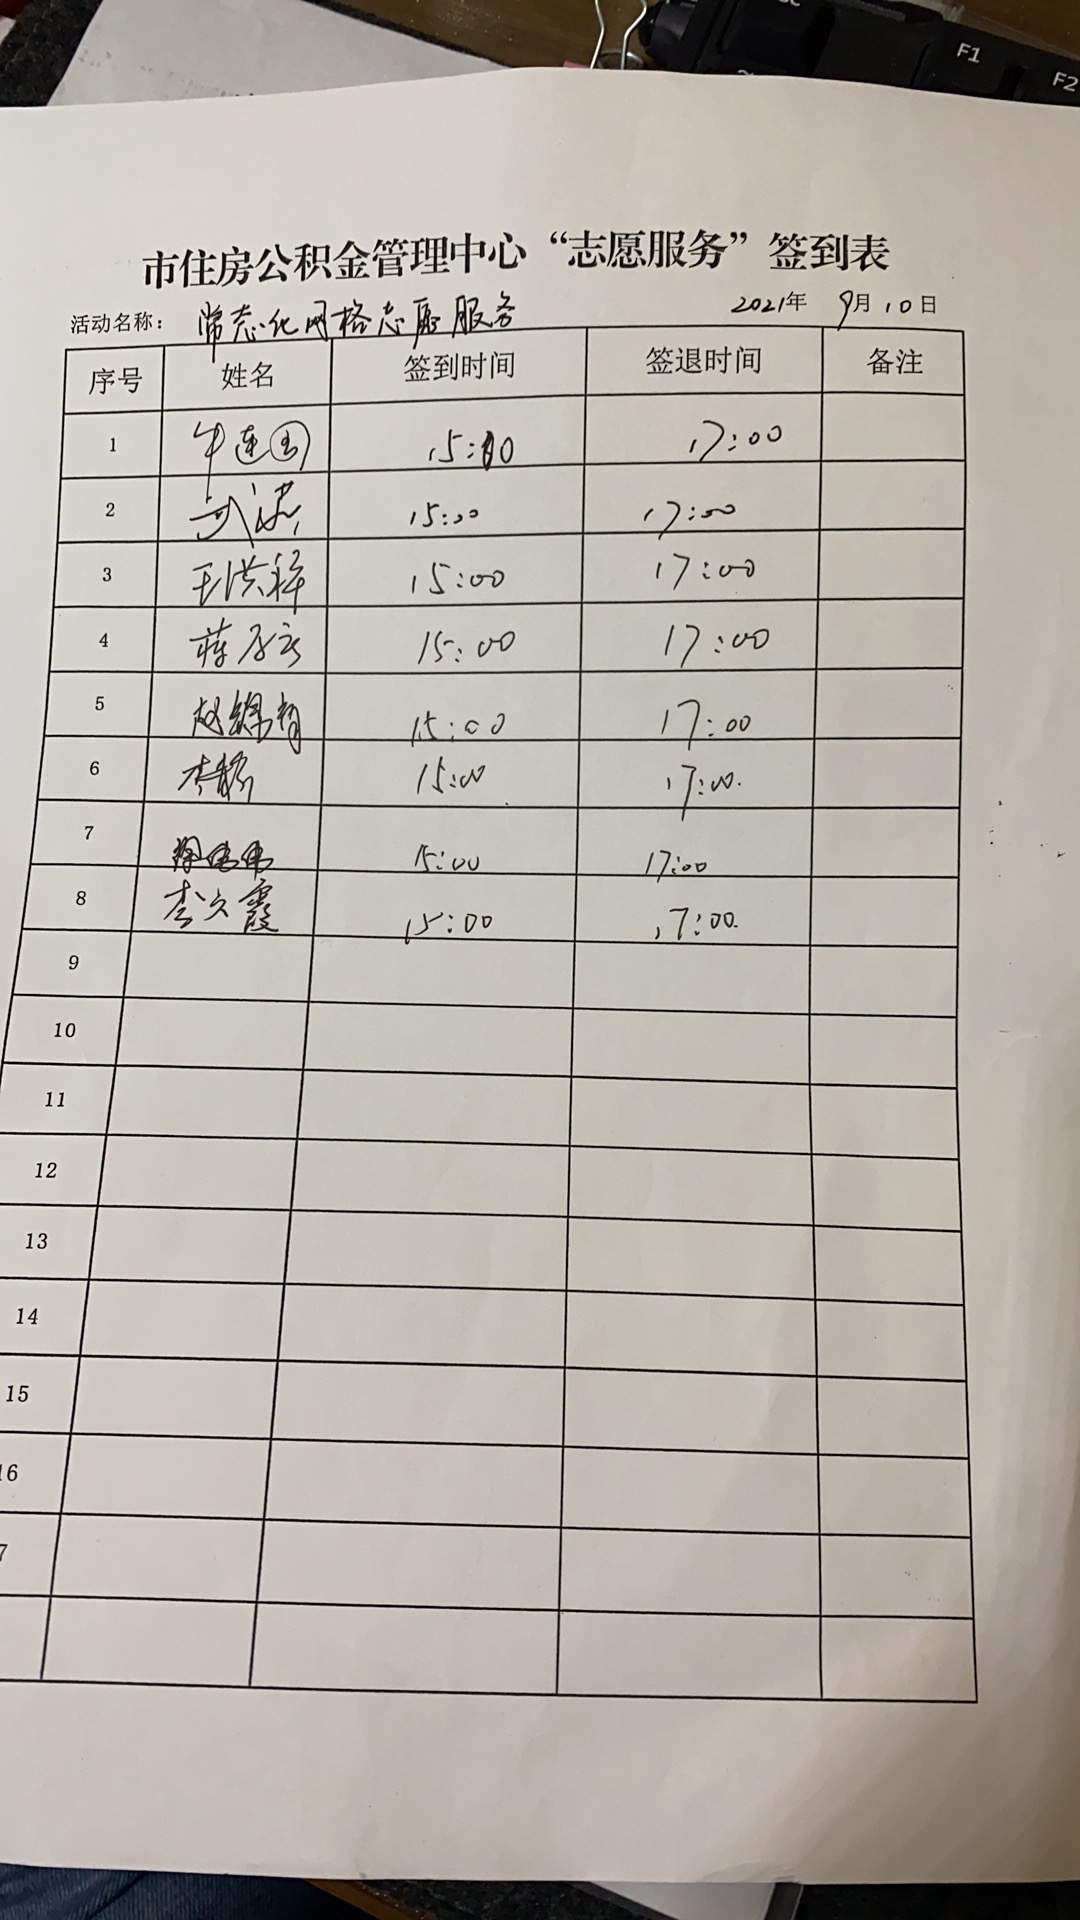 F1
F2
市住房公积金管理中心“志愿服务”签到表
活动名称: 常态化网格志愿服务 2021年 9月10日
序号 姓名 签到时间 签退时间 备注
1 牛连图 15:10 17:00
2 武 15:00 17:00
3 王洪祥 15:00 17:00
4 蒋 15:00 17:00
5 赵锦 15:00 17:00
6 李 15:00 17:00.
7 徐伟伟 15:00 17:00
8 李久霞 15:00 17:00.
9
10
11
12
13
14
15
16
7